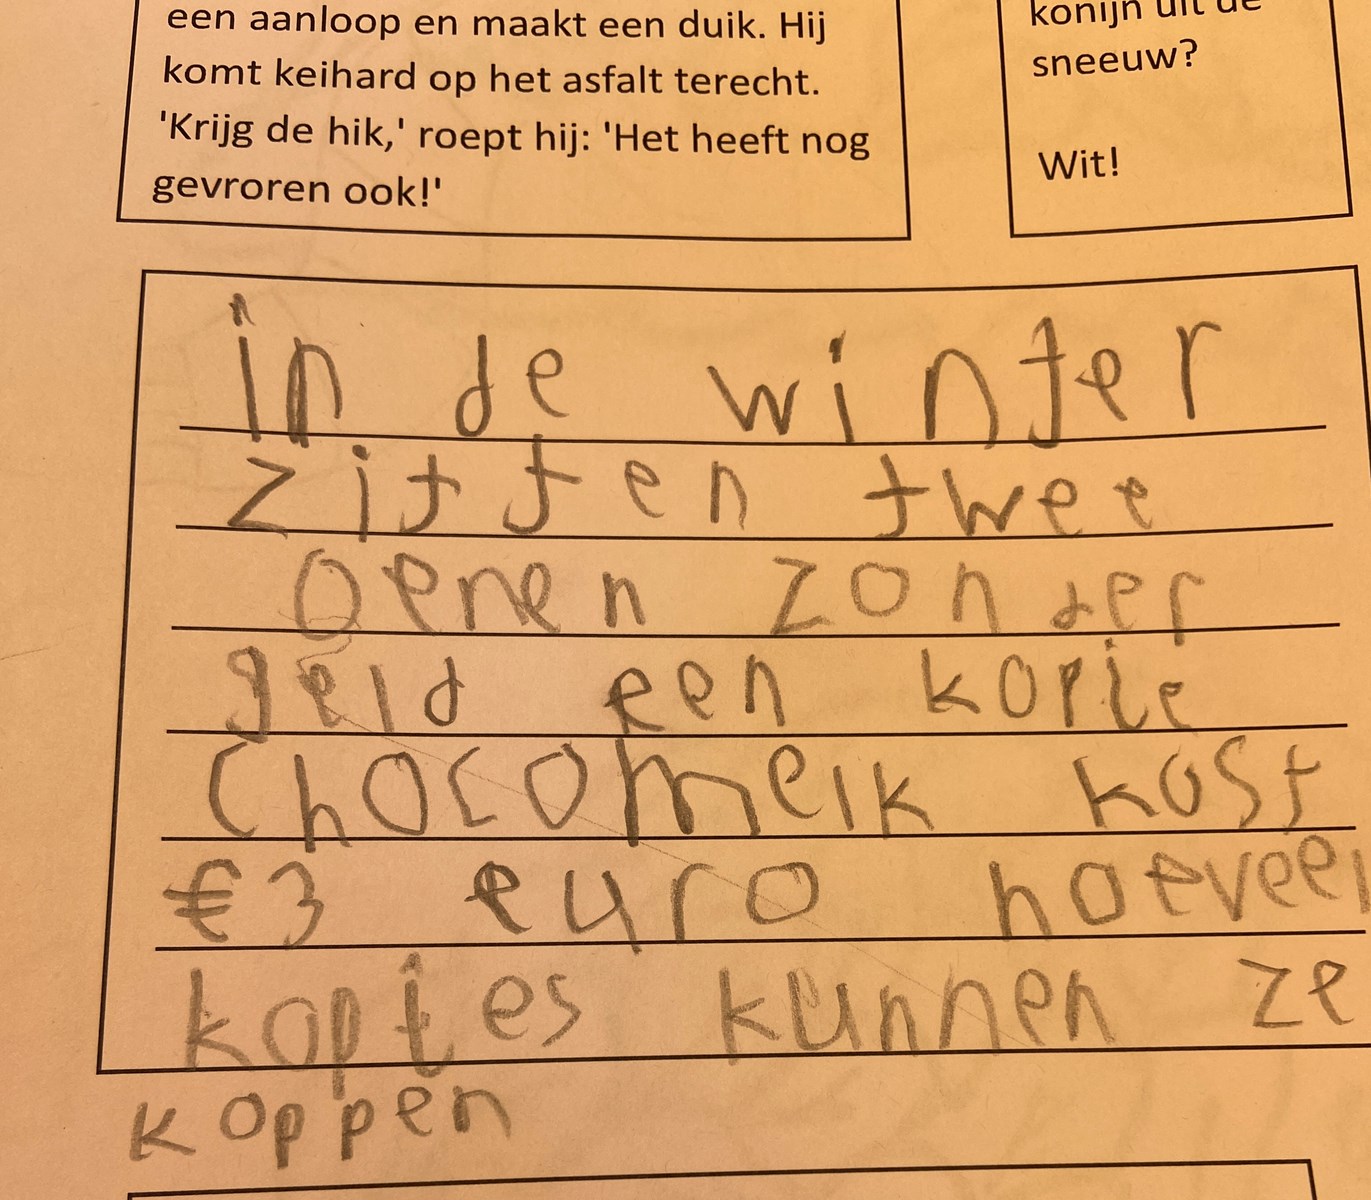 een aanloop en maakt een duik. Hij
komt keihard op het asfalt terecht.
'Krijg de hik,' roept hij: 'Het heeft nog
gevroren ook!'
konijn uit de
sneeuw?
Wit!
in de winter
zitten twee
oenen zonder
geld een kopie
chocomelk kost
€3 euro hoeveel
kopies kunnen ze
koppen